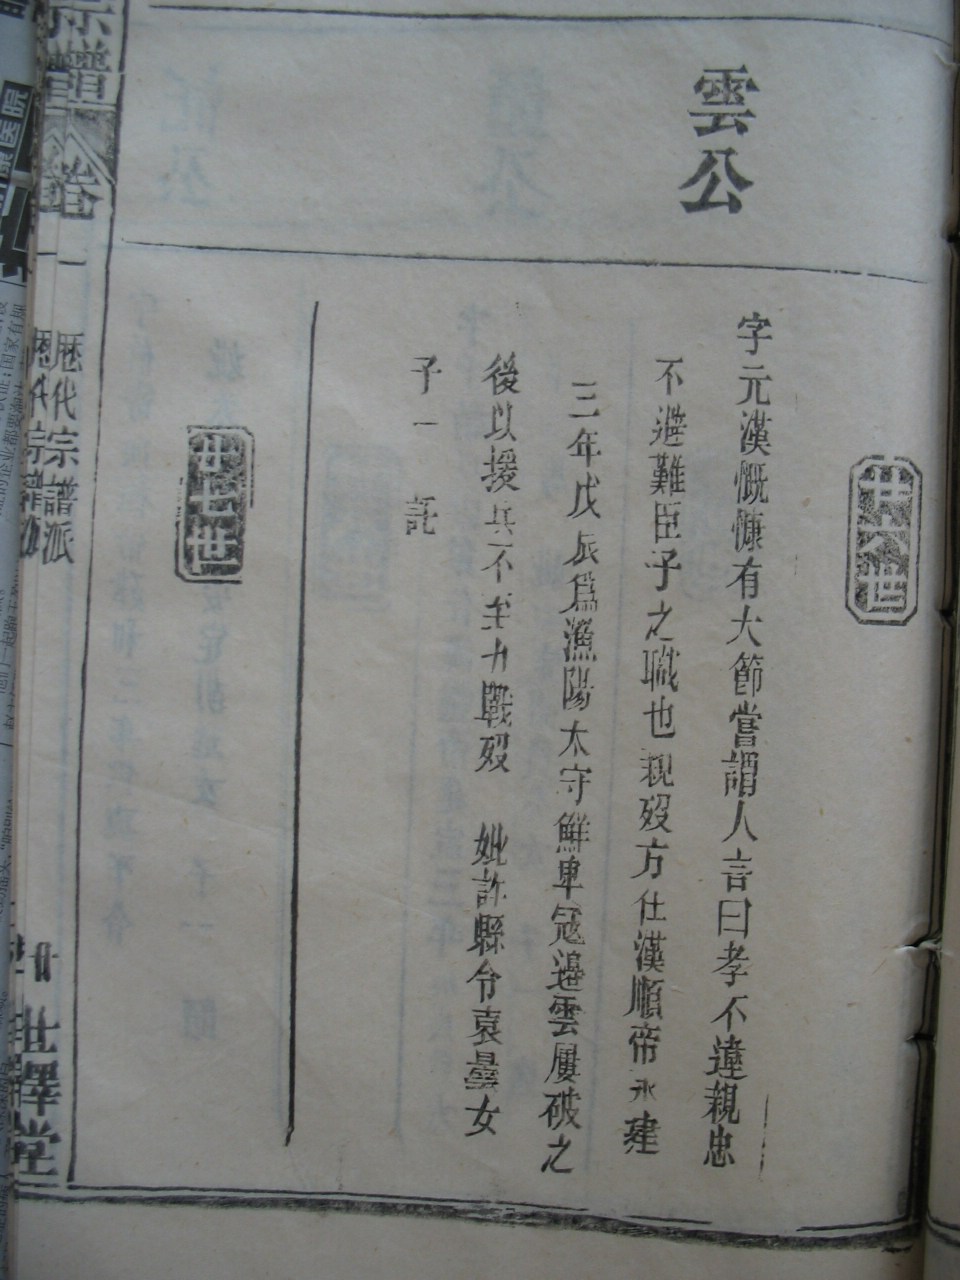 廿六世
雲公
字元漢慨慷有大節嘗謂人言曰孝不違親忠
不避難臣子之職也親歿方仕漢順帝永建
三年戊辰為漁陽太守鮮卑寇邊雲屢破之
後以援兵不至力戰歿 妣許縣令袁曇女
子一 託
廿七世
宗譜 卷一 歷代宗譜派 廿 世澤堂